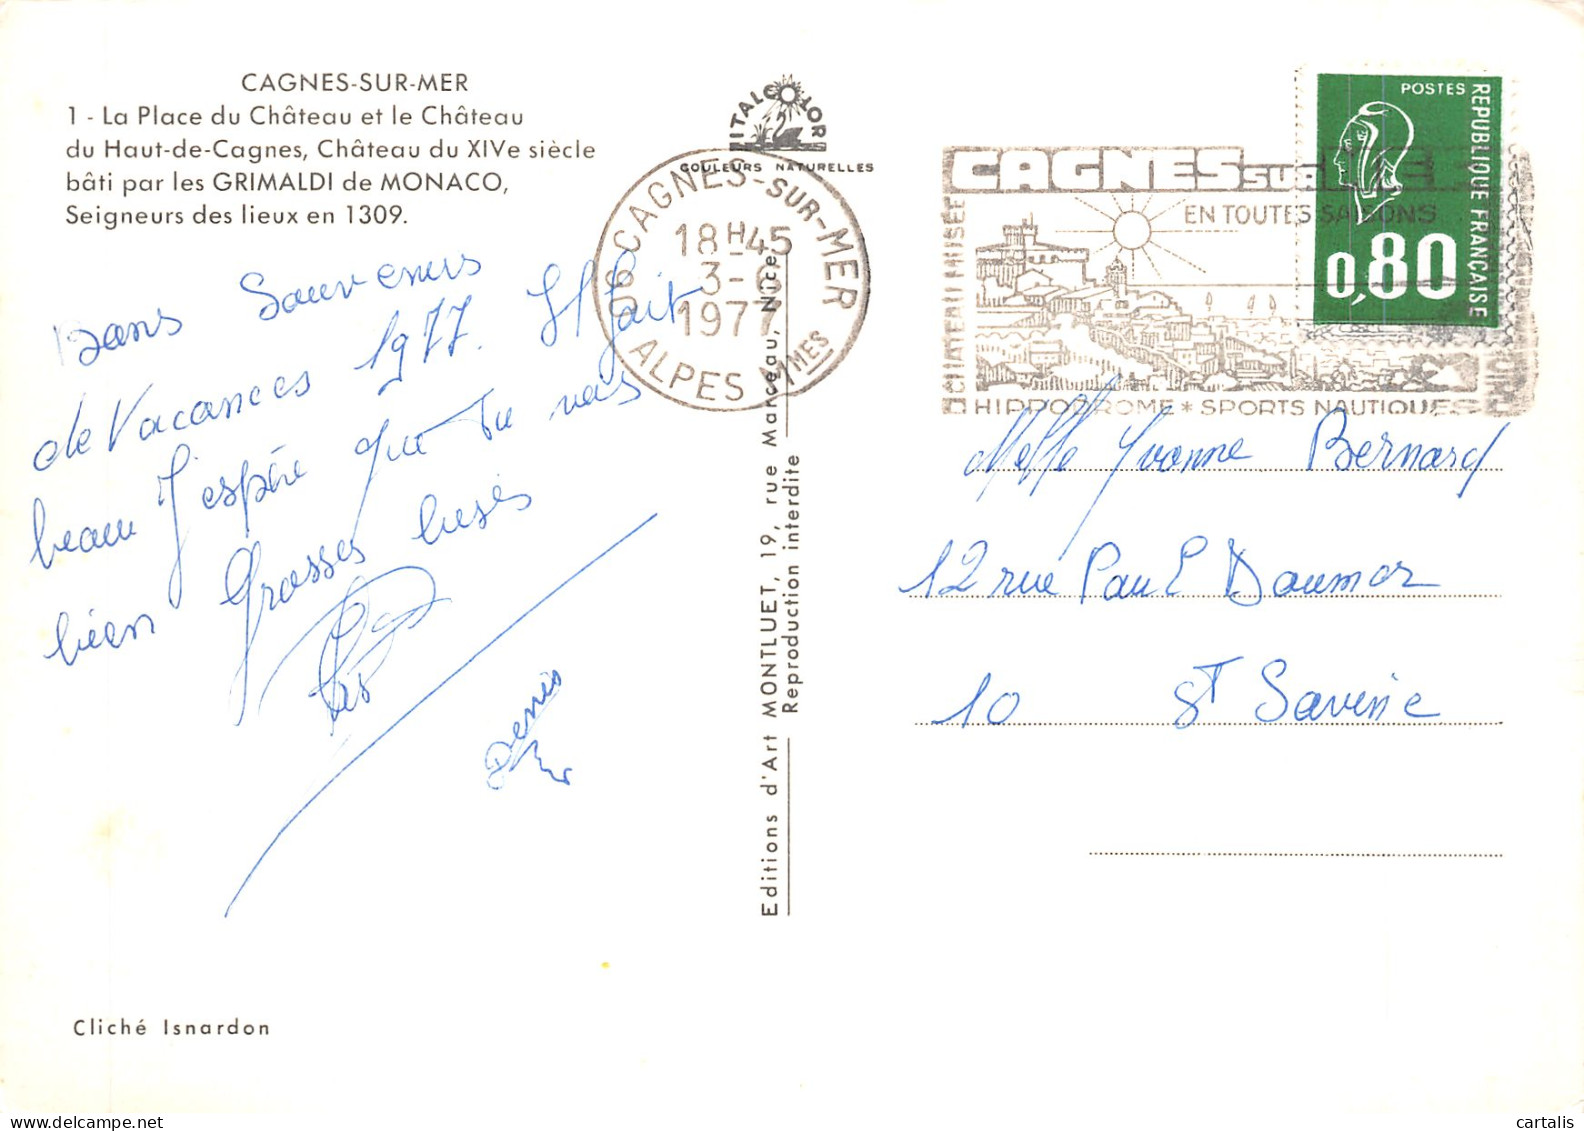 CAGNES-SUR-MER
1 - La Place du Château et le Château
du Haut-de-Cagnes, Château du XIVe siècle
bâti par les GRIMALDI de MONACO,
Seigneurs des lieux en 1309.
Bons Souvenirs
de Vacances 1977. Il fait
beau J'espère que tu vas
bien Grosses bises
Denis
Cliché Isnardon
ITALCOLOR
COULEURS NATURELLES
06 CAGNES-SUR-MER
18H45
3-
1977
ALPES MMES
Editions d'Art MONTLUET, 19, rue Marceau, Nice
Reproduction interdite
CAGNES SUR
EN TOUTES SAISONS
CHATEAU MUSÉE
HIPPODROME * SPORTS NAUTIQUES
POSTES
REPUBLIQUE FRANÇAISE
0,80
Melle Yvonne Bernard
12 rue Paul Doumer
10 St Savine
cartalis